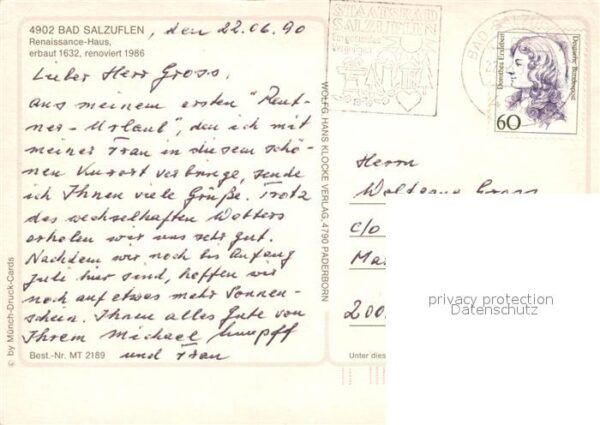 4902 BAD SALZUFLEN, den 22.06.90
Renaissance-Haus,
erbaut 1632, renoviert 1986
Lieber Herr Gross.
Aus meinem ersten "Rent-
ner-Urlaub", den ich mit
meiner Frau in diesem schö-
nen Kurort verbringe, sende
ich Ihnen viele Grüße. Trotz
des wechselhaften Wetters
erholen wir uns sehr gut.
Nachdem wir noch bis Anfang
Juli hier sind, hoffen wir
noch auf etwas mehr Sonnen-
schein. Ihnen alles Gute von
Ihrem Michael
und Frau
Best.-Nr. MT 2189
© by Münch-Druck-Cards
WOLFG. HANS KLOCKE VERLAG, 4790 PADERBORN
STAATSBAD
SALZUFLEN
BAD SALZU
Dorothea Erxleben
Deutsche Bundespost
60
Herrn
Wolfgang Gross
c/o
Ma
200
Unter dies
privacy protection
Datenschutz